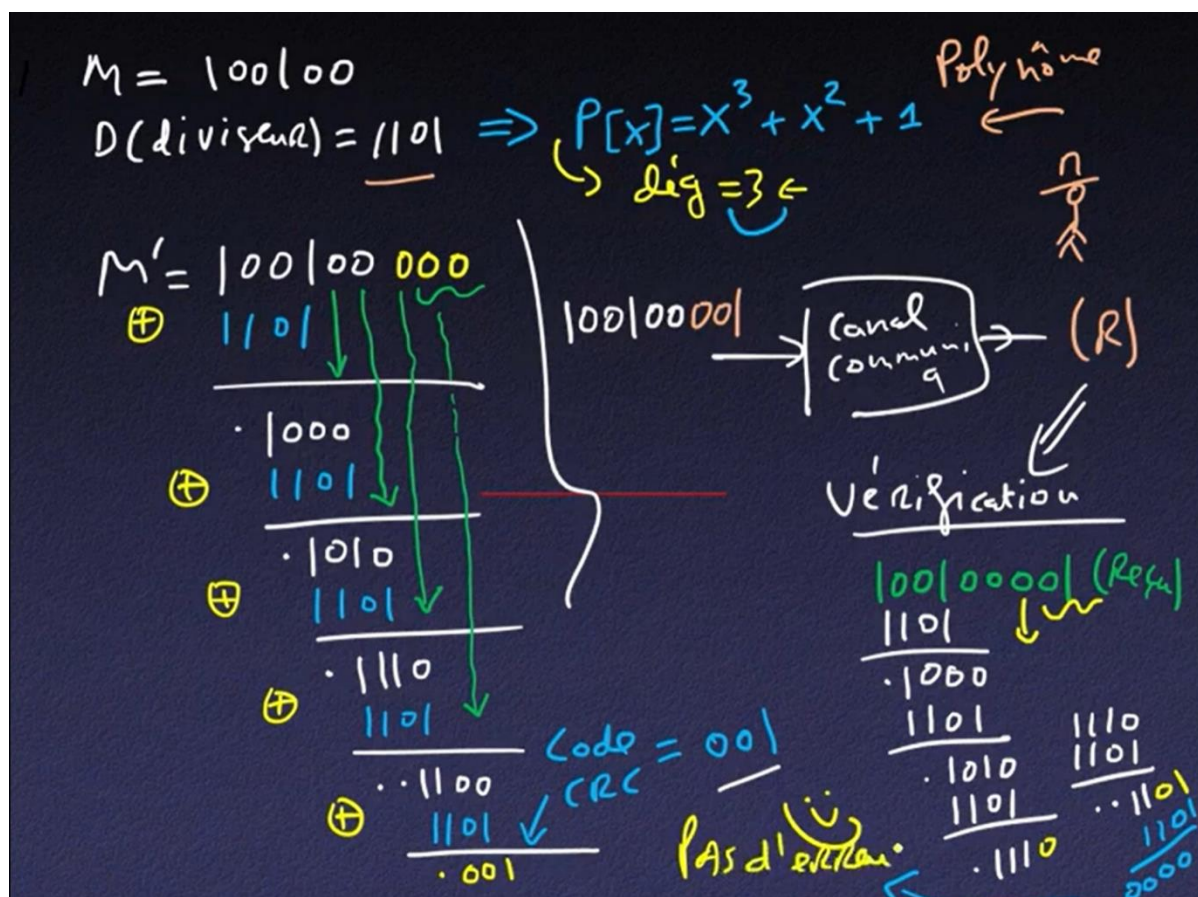 M = 100100
Polynôme
D(diviseur) = 1101 => P[x] = x³ + x² + 1 ←
dég = 3 ←
M' = 100100 000
⊕ 1101
.1000
⊕ 1101
.1010
⊕ 1101
.1110
⊕ 1101
..1100
⊕ 1101
.001
Code CRC = 001
100100001 → Canal
Communi
q
→ (R)
Vérification
100100001 (Reçu)
1101
.1000
1101
.1010
1101
.1110
1110
1101
..1101
1101
0000
PAs d'erreur.